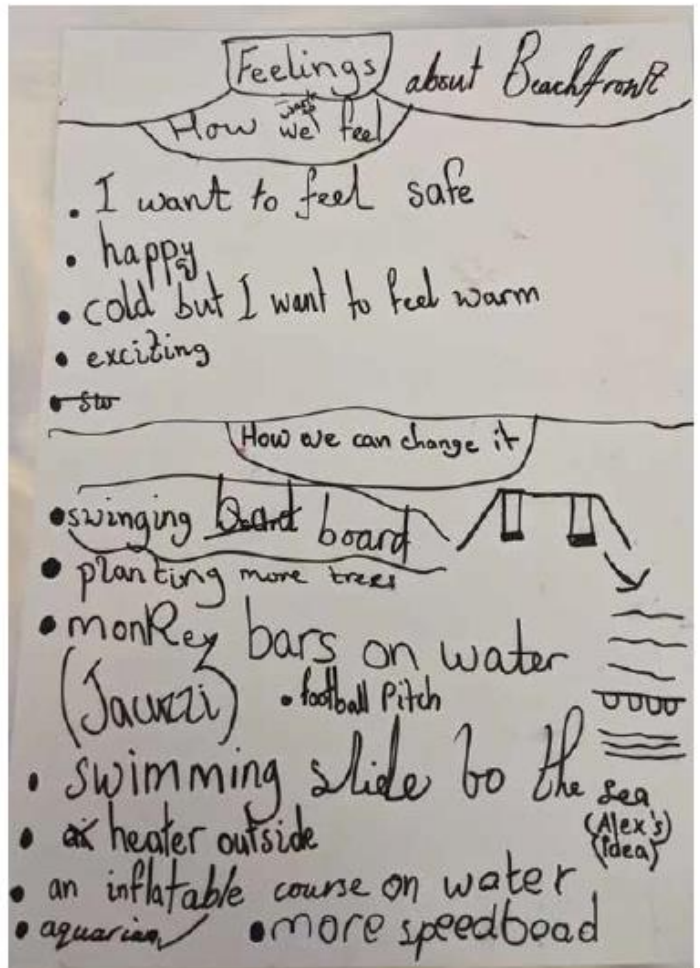 Feelings about Beachfront
How we want to feel
• I want to feel safe
• happy
• cold but I want to feel warm
• exciting
• sw
How we can change it
• swinging board board
• planting more trees
• monkey bars on water
(Jacuzzi) • football Pitch
• swimming slide to the sea
(Alex's
idea)
• heater outside
• an inflatable course on water
• aquarian • more speedboad